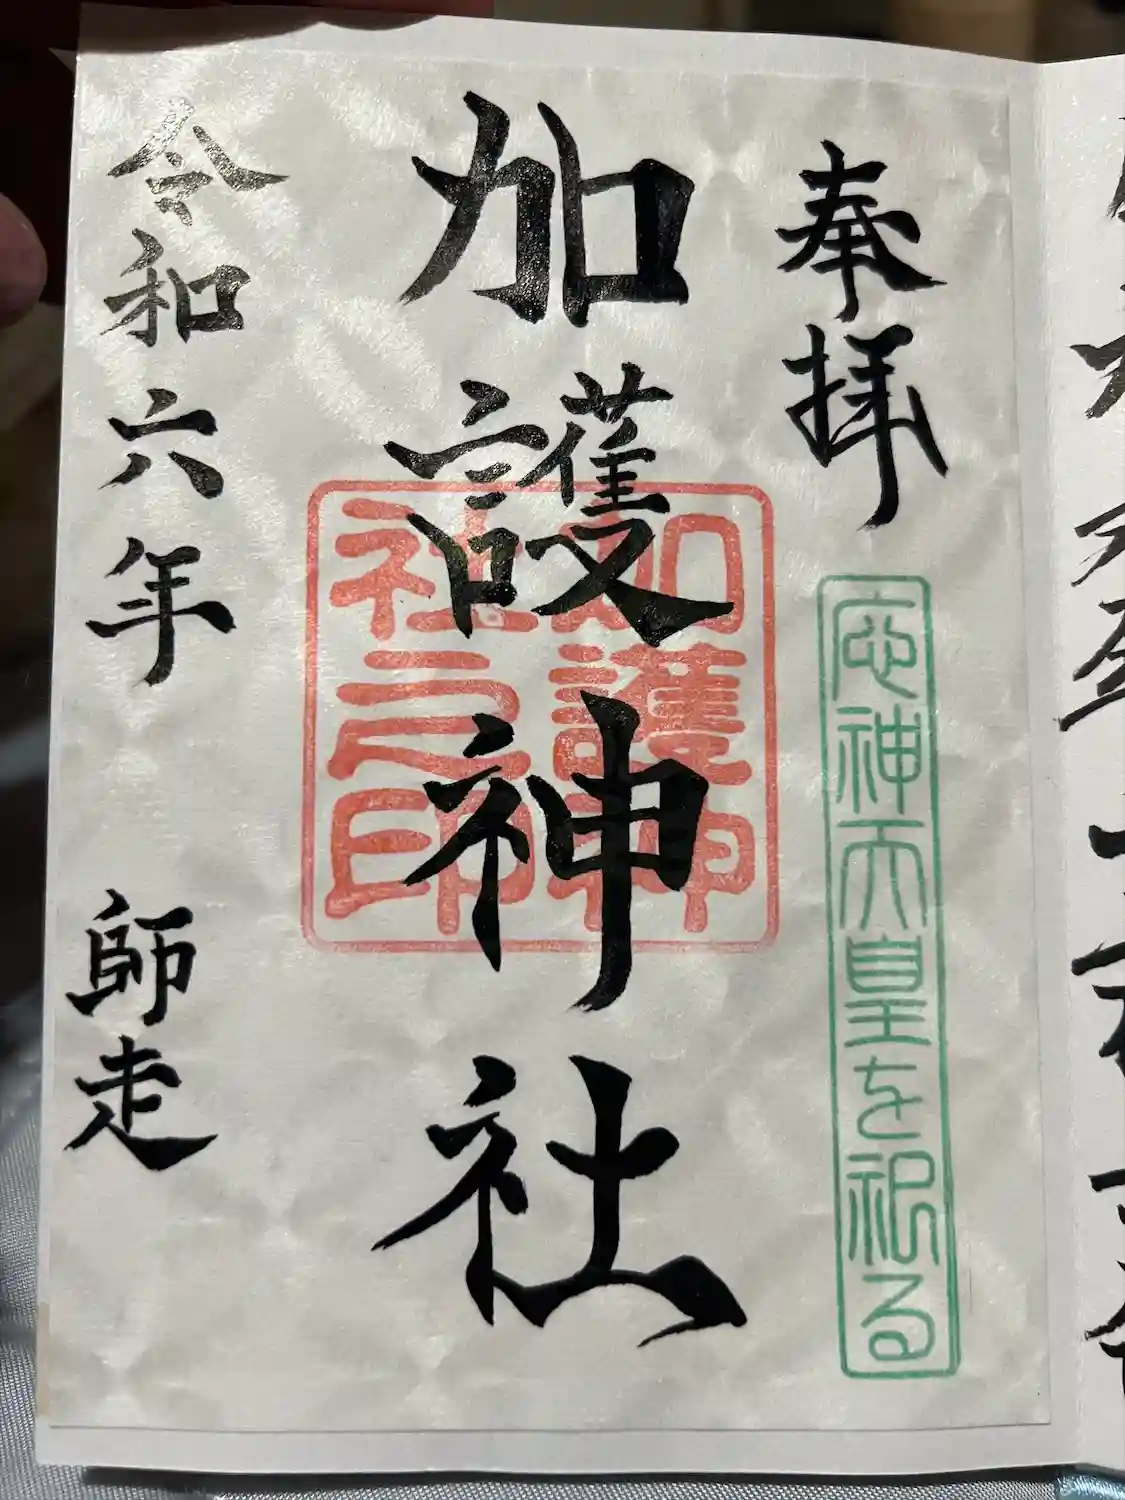 奉拝
応神天皇を祀る
加護神社
加護神
社之印
令和六年 師走